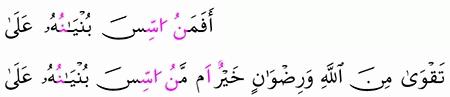 أَفَمَنُ اسِّسَ بُنْيَـٰنُهُۥ عَلَىٰ
تَقْوَىٰ مِنَ اللَّهِ وَرِضْوَٰنٍ خَيْرٌ اَم مَّنُ اسِّسَ بُنْيَـٰنُهُۥ عَلَىٰ